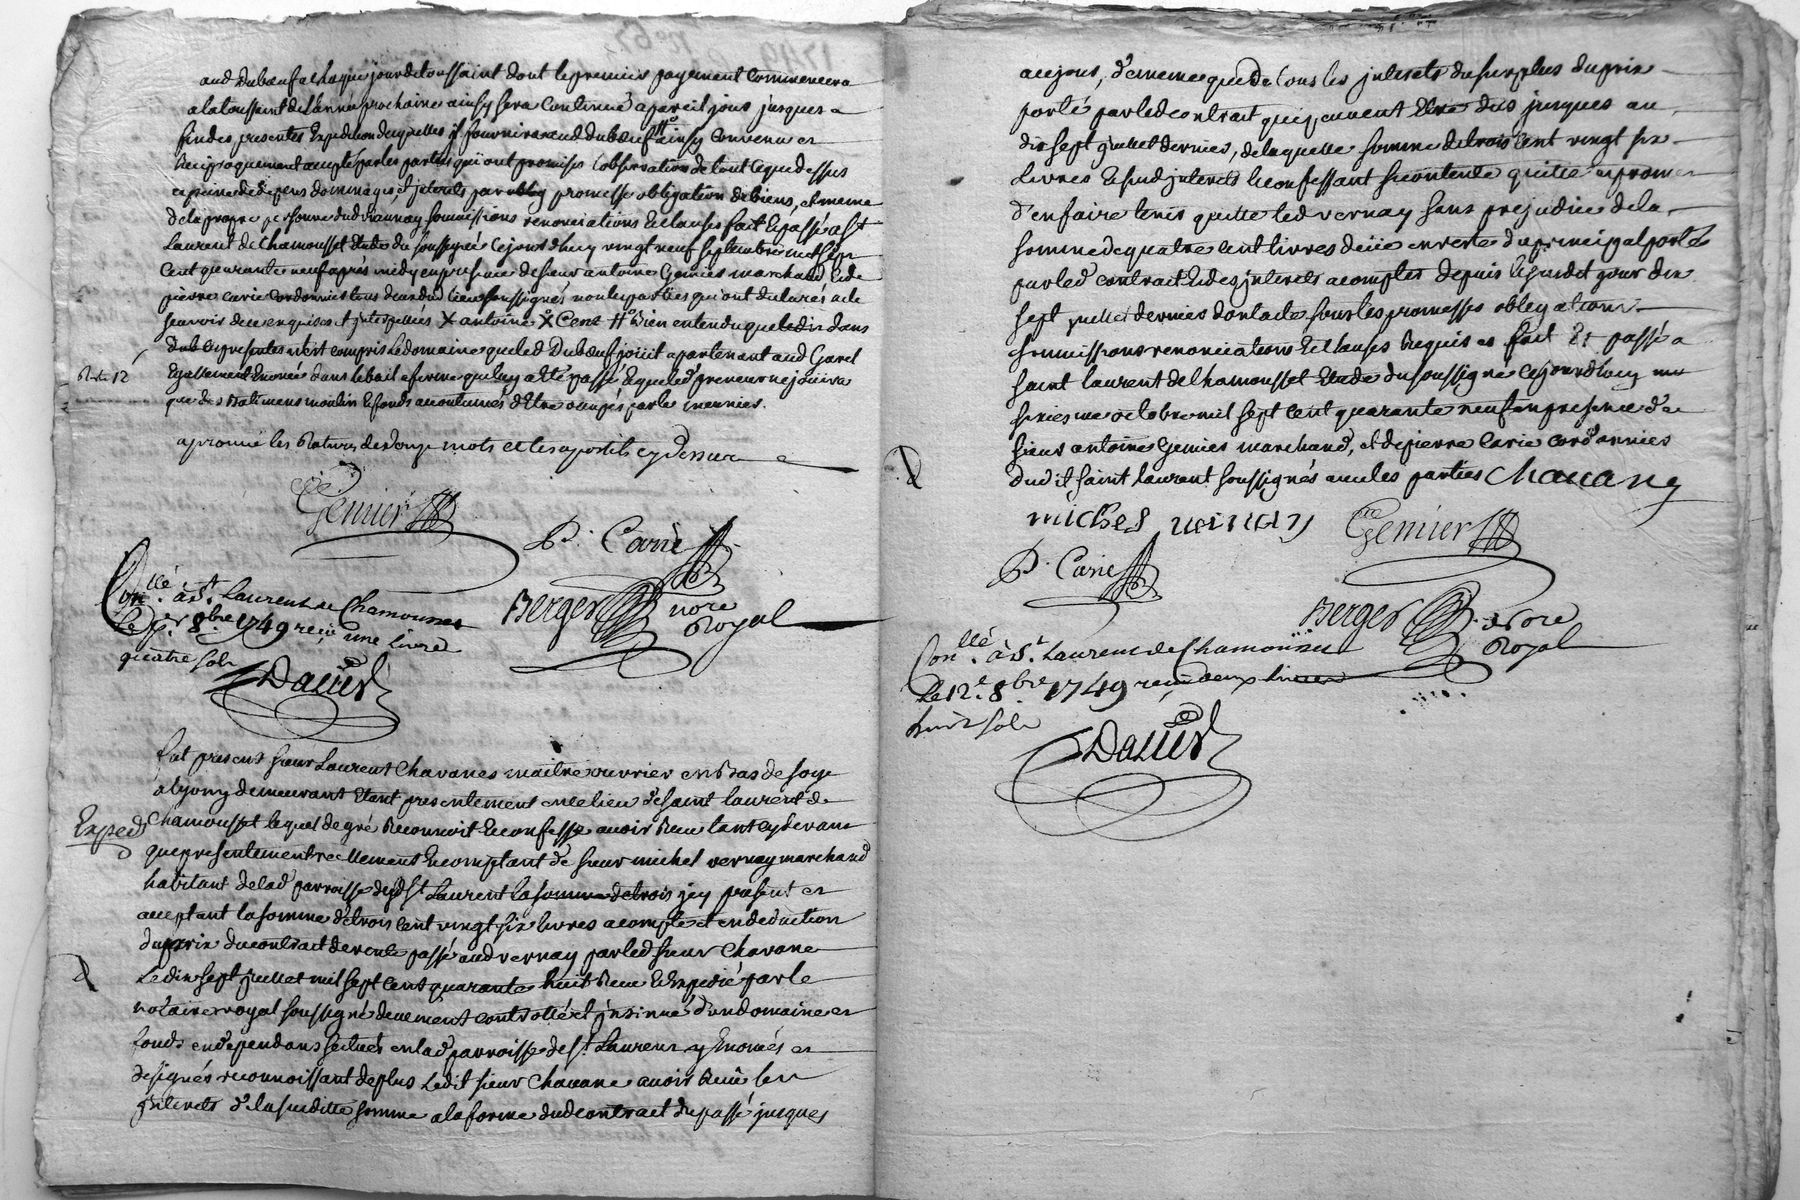 aud Dubœuf a chaque jour de toussaint dont le premier payement commencera
a la toussaint de l'année prochaine ainsy sera continué a pareil jour jusques a
fin des presentes Expedition desquelles il fournira aud dubœuf ainsy convenu et
Reciproquement accepté par les parties qui ont promises l'observation de tout ce que dessus
a peine de depens dommages, et jnterets par promesse obligation de biens, et meme
de la propre personne dud vernay soumissions renonciations et clauses fait et passé a St
Laurent de Chamousset Etude du soussigné ce jourd'huy vingt neuf septembre mil sept
cent quarante neuf après midy en presence de sieur antoine Genier marchand et de
pierre carie cordonnier tous deux dud lieu soussignés non les parties qui ont declarés ne le
scavoir de ce enquises et jnterpellées X antoine X Cent Bien entendu que dans
les presentes n'est compris le domaine que led Dubœuf jouit apartenant aud Garel
Egallement Enoncé dans le bail a ferme que luy a eté passé Et que led preneur ne jouira
que des Batimens moulin et fonds accoutumés d'Etre occupés par le meunier.
aprouvé les Ratures de douze mots et les apostils cy dessus
Genier
P. Carie
Berger nore
Royal
Con.llé à St. Laurent de Chamousset
Le p.r 8.bre 1749 reçu une livre
quatre sols
Davier
fut present sieur Laurent Chavanes maitre ouvrier en Bas de soye
a lyon y demeurant Etant presentement en ce lieu de saint laurent de
Exped
Chamousset lequel de gré Reconnoit Et confesse avoir Reçu tant cy devant
que presentement reellement Et comptant de sieur michel vernay marchand
habitant de lad parroisse dud St Laurent la somme de trois jcy present et
acceptant la somme de trois cent vingt six livres a compte et en deduction
du prix du contract de vente passé aud vernay par led sieur Chavane
Le dix sept juillet mil sept cent quarante huit Reçu et Expedié par le
notaire royal soussigné deuement controllé et jnsinué d'un domaine et
fonds en dependans scitués en lad parroisse de St. Laurent y Enoncés et
designés reconnoissant de plus Ledit sieur Chavane avoir Reçu les
jnterets de la susditte somme a la forme dud contract du passé jusques
a ce jour, de meme que de tous les jnterets du surplus du prix
porté par led contract qui peuvent Etre dus jusques au
dix sept juillet dernier, de laquelle somme de trois cent vingt six
Livres Et susd jnterets le confessant se contente quitte et promet
d'en faire tenir quitte led vernay sans prejudice de la
somme de quatre cent livres deüe en reste du principal porté
par led contract et des jnterets a compter depuis le susdit jour dix
sept juillet dernier dont acte sous les promesses obligations
soummissions renonciations Et clauses Requises fait Et passé a
saint laurent de Chamousset Etude du soussigné ce jourd'huy
seiesme octobre mil sept cent quarante neuf en presence de
sieur antoine Genier marchand, et de pierre carie cordonnier
dudit saint laurent soussignés avec les parties Chavany
michel vernay
Genier
P. Carie
Berger nore
Royal
Con.llé à St. Laurent de Chamousset
Le 12.e 8.bre 1749 reçu deux livres
huit sols
Davier